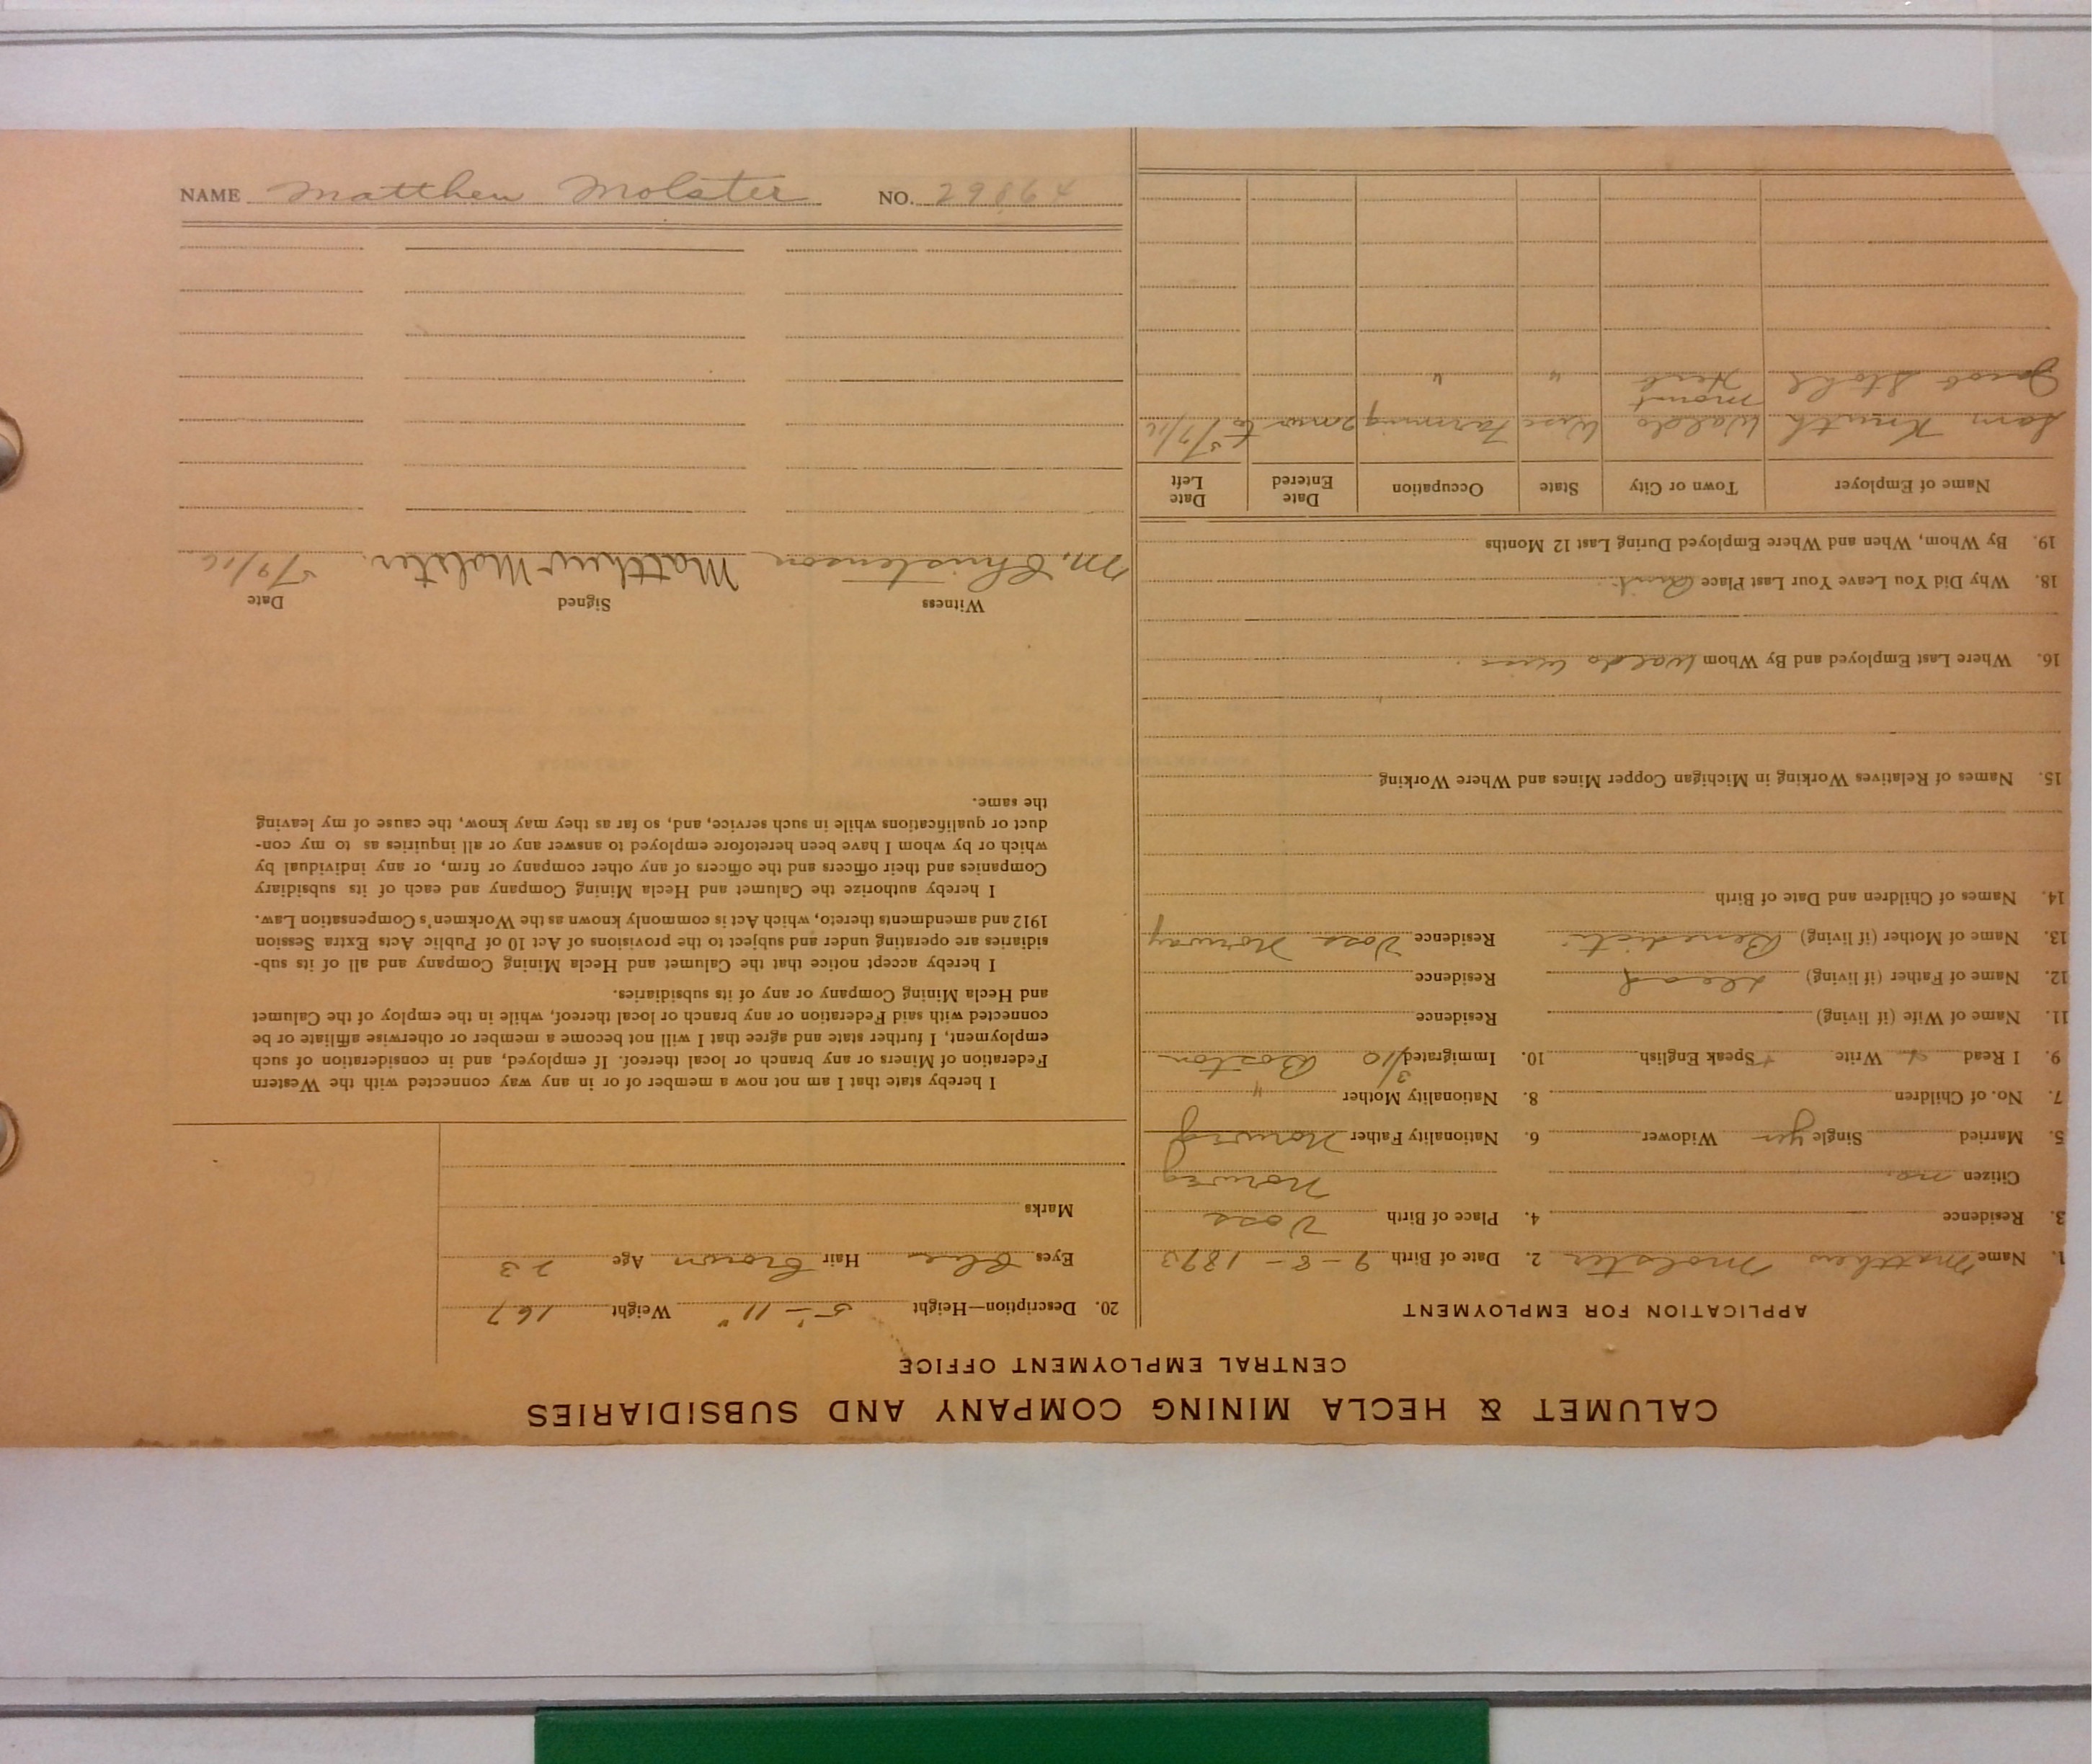 CALUMET & HECLA MINING COMPANY AND SUBSIDIARIES
CENTRAL EMPLOYMENT OFFICE
APPLICATION FOR EMPLOYMENT
1. Name Matthew Molster 2. Date of Birth 9-8-1893
3. Residence 4. Place of Birth Voss
Citizen no. Norweg
5. Married Single yes Widower 6. Nationality Father Norweg
7. No. of Children 8. Nationality Mother "
9. I Read Write Speak English 10. Immigrated 3/10 Boston
11. Name of Wife (if living) Residence
12. Name of Father (if living) dead Residence
13. Name of Mother (if living) Benedict Residence Voss Norway
14. Names of Children and Date of Birth
15. Names of Relatives Working in Michigan Copper Mines and Where Working
16. Where Last Employed and By Whom Waldo Wis
18. Why Did You Leave Your Last Place Quit
19. By Whom, When and Where Employed During Last 12 Months
Name of Employer Town or City State Occupation Date Entered Date Left
Sam Knuth Waldo Wisc Farming to 5/7/16
Jacob Stoll Mount " "
20. Description—Height 5'-11" Weight 167
Eyes Blue Hair Brown Age 23
Marks
I hereby state that I am not now a member of or in any way connected with the Western
Federation of Miners or any branch or local thereof. If employed, and in consideration of such
employment, I further state and agree that I will not become a member or otherwise affiliate or be
connected with said Federation or any branch or local thereof, while in the employ of the Calumet
and Hecla Mining Company or any of its subsidiaries.
I hereby accept notice that the Calumet and Hecla Mining Company and all of its sub-
sidiaries are operating under and subject to the provisions of Act 10 of Public Acts Extra Session
1912 and amendments thereto, which Act is commonly known as the Workmen's Compensation Law.
I hereby authorize the Calumet and Hecla Mining Company and each of its subsidiary
Companies and their officers and the officers of any other company or firm, or any individual by
which or by whom I have been heretofore employed to answer any or all inquiries as to my con-
duct or qualifications while in such service, and, so far as they may know, the cause of my leaving
the same.
Witness Signed Date
M. Christenson Matthew Molster. 5/9/16
NAME Matthew Molster NO. 29864